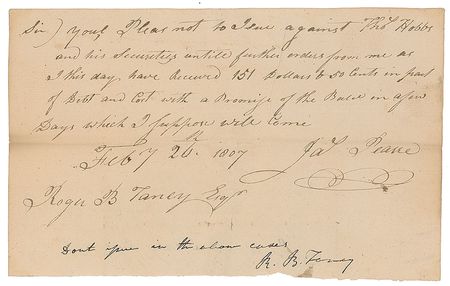 Sir) youl Pleas not to Isue against Thos Hobbs
and his Securities untill further orders from me as
I this day have received 151 Dollars & 50 Cents in part
of Debt and Cost with a Promise of the Balce in a few
Days which I suppose will Come
Feby 26th 1807 Jas Pearre
Roger B Taney Esqr
Dont issue in the above cases
R. B. Taney